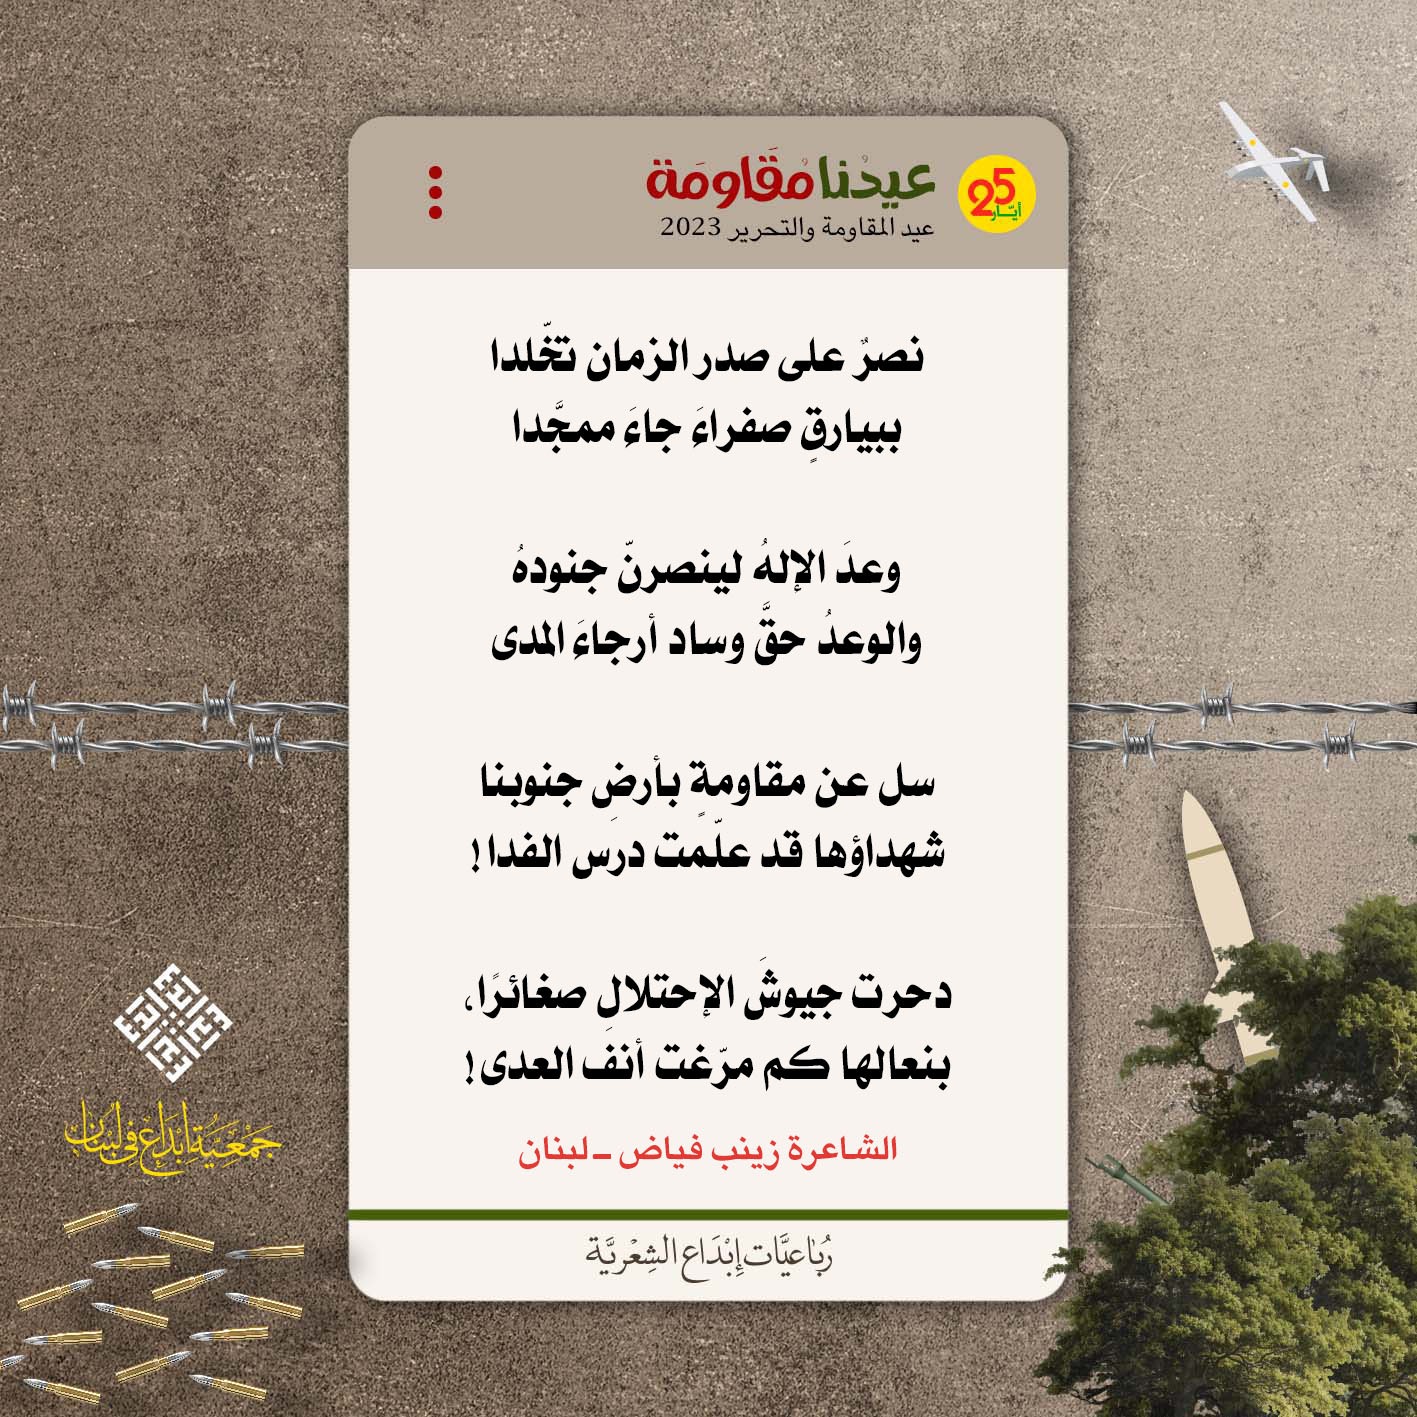 25
أيّار
عيدُنا مُقَاومَة
عيد المقاومة والتحرير 2023
نصرٌ على صدر الزمان تخّلدا
ببيارقٍ صفراءَ جاءَ ممجَّدا
وعدَ الإلهُ لينصرنّ جنودهُ
والوعدُ حقَّ وساد أرجاءَ المدى
سل عن مقاومةٍ بأرضِ جنوبنا
شهداؤها قد علّمت درس الفدا!
دحرت جيوشَ الإحتلالِ صغائرًا،
بنعالها كم مرّغت أنفَ العدى!
الشاعرة زينب فياض - لبنان
رُبَاعيَّات إِبْدَاع الشِعْريَّة
جَمْعِيَّةِ إبْدَاع فِي لُبْنَان